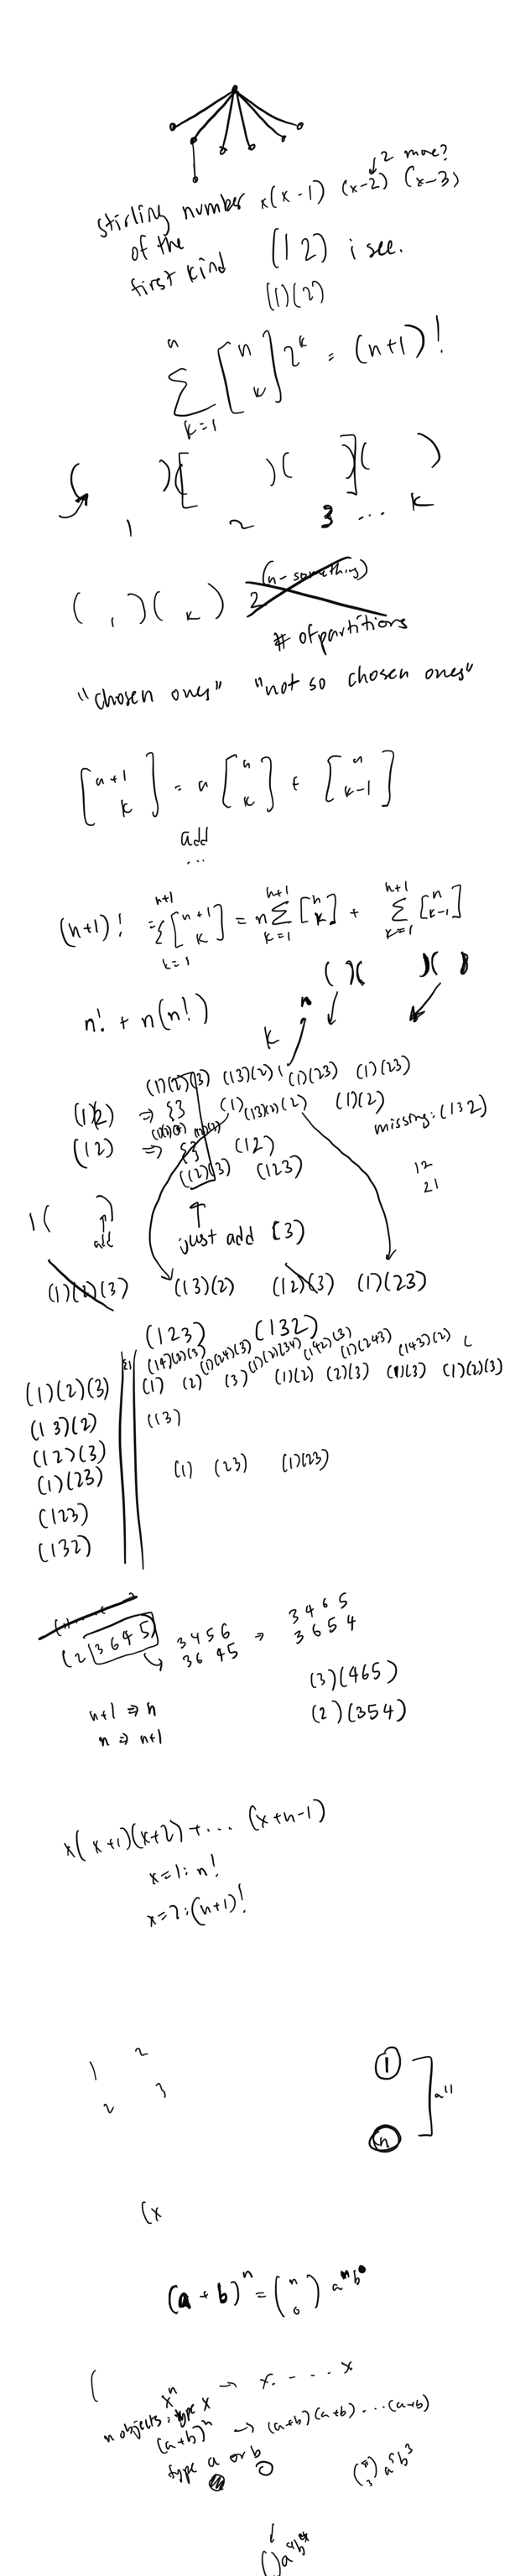 2 more?
stirling number x(x-1) (x-2) (x-3)
of the
first kind (1 2) i see.
(1)(2)
n
∑ [n k] 2^k = (n+1)!
k=1
( )[( )( )]( )
1 2 3 ... k
(n-something)
( , )( k ) 2
# of partitions
"chosen ones" "not so chosen ones"
[n+1 k] = n [n k] + [n k-1]
add
...
(n+1)! = ∑ k=1 n+1 [n+1 k] = n ∑ k=1 n+1 [n k] + ∑ k=1 n+1 [n k-1]
( )( )( )
n! + n(n!)
n
k
(1)(2)(3) (13)(2) (1)(23) (1)(23)
(1)(2) ⇒ {} (1) (13)(2) (2) (1)(2)
missing: (132)
(12) ⇒ {} (12)
(12)(3) (123)
12
21
1( )
add
just add (3)
(1)(2)(3) (13)(2) (12)(3) (1)(23)
(123) (132)
(14)(2)(3) (1)(24)(3) (1)(2)(34) (142)(3) (1)(243) (143)(2) (
(1)(2)(3) {} (1) (2) (3) (1)(2) (2)(3) (1)(3) (1)(2)(3)
(13)(2) (13)
(12)(3)
(1)(23) (1) (23) (1)(23)
(123)
(132)
(2 3645) 3456 ⇒ 3465
3645 3654
(3)(465)
n+1 ⇒ n (2)(354)
n ⇒ n+1
x(x+1)(x+2)+... (x+n-1)
x=1: n!
x=2: (n+1)!
1 2
2 3
1
n
(x
(a+b)^n = (n 0) a^n b^0
(
x^n → x. - . . . x
n objects: type x
(a+b)^n → (a+b)(a+b)...(a+b)
type a or b